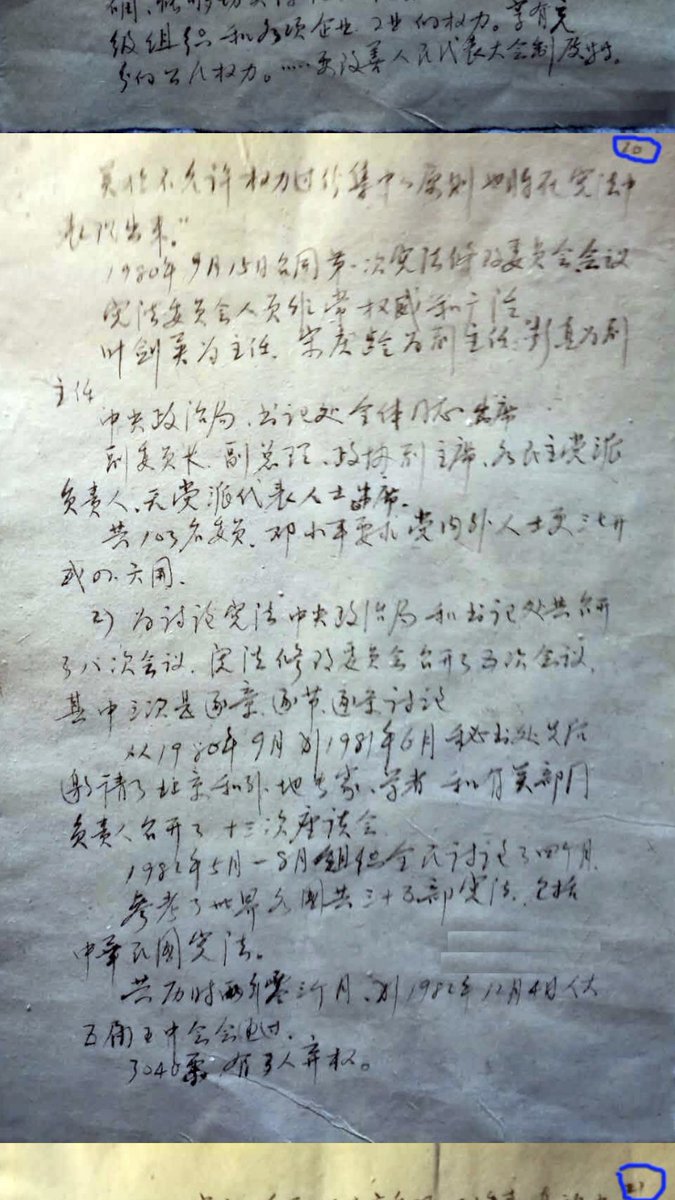 级组织和各项企业、工业的权力。享有充
分的公民权力。……要改善人民代表大会制度等。
10
关于不允许权力过份集中的原则也将在宪法中
表现出来。"
1980年9月15日召开第一次宪法修改委员会会议
宪法委员会人员非常权威和广泛
叶剑英为主任、宋庆龄为副主任、彭真为副
主任
中央政治局、书记处全体同志出席
副委员长、副总理、政协副主席、各民主党派
负责人、无党派代表人士出席。
共103名委员、邓小平要求党内外人士要三七开
或四、六开。
2）为讨论宪法中央政治局和书记处共召开
了八次会议、宪法修改委员会召开了五次会议、
其中三次是逐章、逐节、逐条讨论
从1980年9月到1981年6月秘书处先后
邀请了北京和外地专家、学者和有关部门
负责人召开了十三次座谈会
1982年5月－8月组织全民讨论了四个月、
参考了世界各国共三十五部宪法、包括
中华民国宪法。
共历时两年零三个月、到1982年12月4日人大
五届五中会会通过、
3040票、有3人弃权。